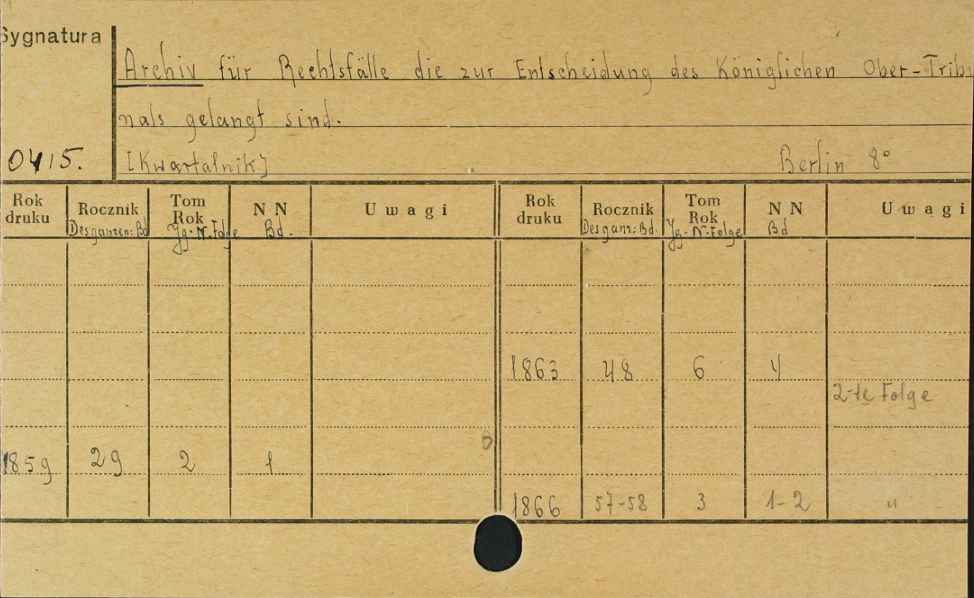 Sygnatura
Archiv für Rechtsfälle die zur Entscheidung des Königlichen Ober-Tribu
nals gelangt sind.
0415. [Kwartalnik] Berlin 8°
Rok druku Rocznik Tom Rok NN Uwagi Rok druku Rocznik Tom Rok NN Uwagi
Des ganzen: Bd Jg. N. Folge Bd. Des ganz: Bd. Jg. N. Folge Bd
1863 48 6 4
2-te Folge
1859 29 2 1
1866 57-58 3 1-2 "